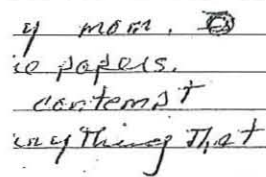 y mom.
ie papers.
contempt
inything that